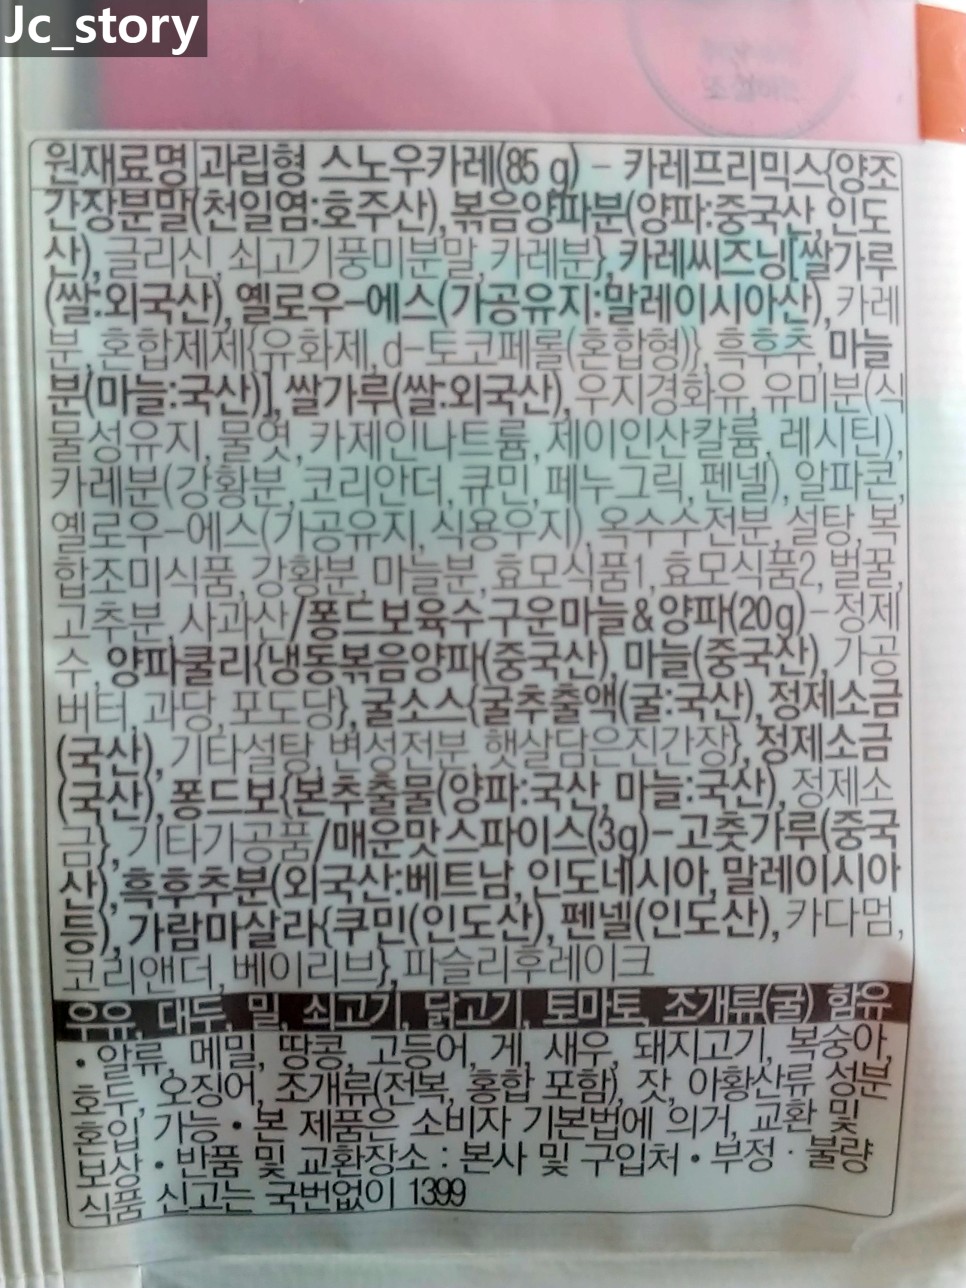 Jc_story
원재료명 과립형 스노우카레(85 g) - 카레프리믹스{양조
간장분말(천일염:호주산), 볶음양파분(양파:중국산, 인도
산), 글리신, 쇠고기풍미분말, 카레분}, 카레씨즈닝[쌀가루
(쌀:외국산), 옐로우-에스(가공유지:말레이시아산), 카레
분, 혼합제제{유화제, d-토코페롤(혼합형)}, 흑후추, 마늘
분(마늘:국산)], 쌀가루(쌀:외국산), 우지경화유, 유미분(식
물성유지, 물엿, 카제인나트륨, 제이인산칼륨, 레시틴),
카레분(강황분, 코리안더, 큐민, 페누그릭, 펜넬), 알파콘,
옐로우-에스(가공유지, 식용우지), 옥수수전분, 설탕, 복
합조미식품, 강황분, 마늘분, 효모식품1, 효모식품2, 벌꿀,
고추분, 사과산/퐁드보육수 구운마늘&양파(20g)-정제
수, 양파쿨리{냉동볶음양파(중국산), 마늘(중국산), 가공
버터, 과당, 포도당}, 굴소스{굴추출액(굴:국산), 정제소금
(국산), 기타설탕, 변성전분, 햇살담은진간장}, 정제소금
(국산), 퐁드보{본추출물(양파:국산, 마늘:국산), 정제소
금}, 기타가공품/매운맛 스파이스(3g)-고춧가루(중국
산), 흑후추분(외국산:베트남, 인도네시아, 말레이시아
등), 가람마살라{쿠민(인도산), 펜넬(인도산), 카다멈,
코리앤더, 베이리브}, 파슬리후레이크
우유, 대두, 밀, 쇠고기, 닭고기, 토마토, 조개류(굴) 함유
• 알류, 메밀, 땅콩, 고등어, 게, 새우, 돼지고기, 복숭아,
호두, 오징어, 조개류(전복, 홍합 포함), 잣, 아황산류 성분
혼입 가능 • 본 제품은 소비자 기본법에 의거, 교환 및
보상 • 반품 및 교환장소 : 본사 및 구입처 • 부정 · 불량
식품 신고는 국번없이 1399